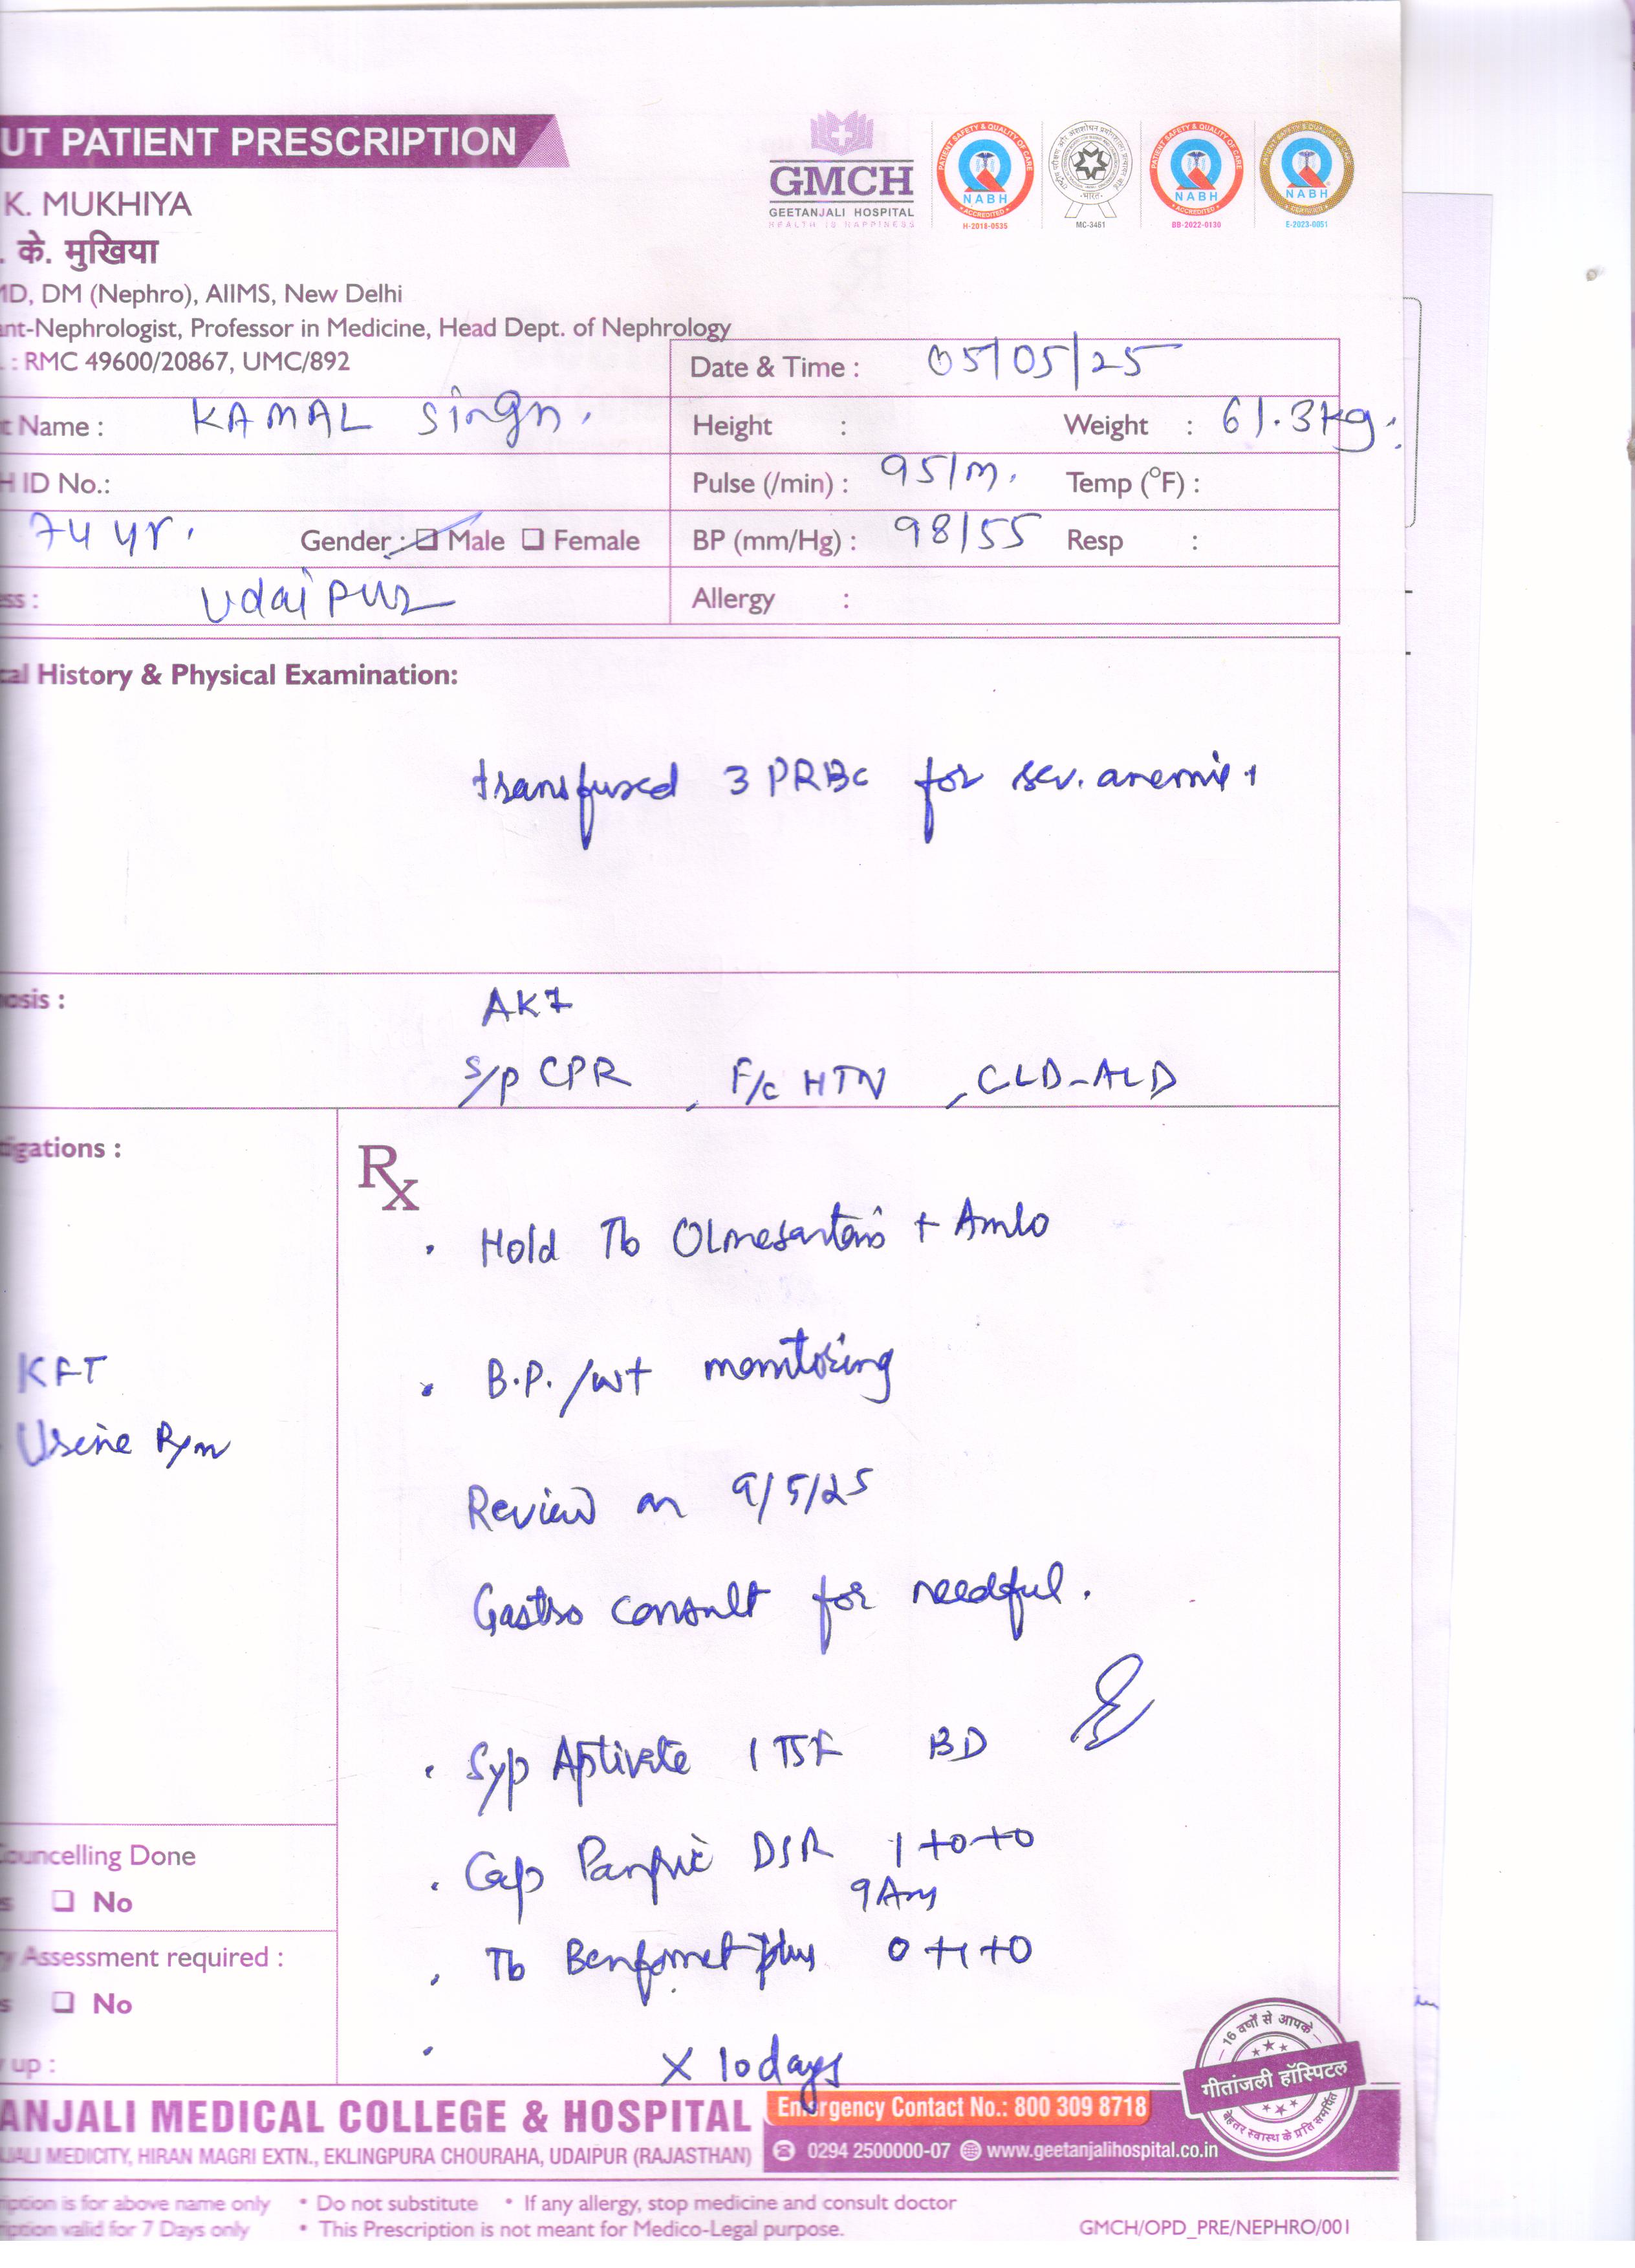 UT PATIENT PRESCRIPTION
GMCH
GEETANJALI HOSPITAL
HEALTH IS HAPPINESS
PATIENT SAFETY & QUALITY OF CARE
NABH
ACCREDITED
H-2018-0535
MC-3461
PATIENT SAFETY & QUALITY OF CARE
NABH
ACCREDITED
BB-2022-0130
NABH
E-2023-0051
K. MUKHIYA
. के. मुखिया
MD, DM (Nephro), AIIMS, New Delhi
ant-Nephrologist, Professor in Medicine, Head Dept. of Nephrology
: RMC 49600/20867, UMC/892
Date & Time : 05/05/25
t Name : KAMAL Singh.
Height : Weight : 61.3kg.
H ID No.:
Pulse (/min) : 95/m. Temp (°F) :
74 yr. Gender : Male Female
BP (mm/Hg) : 98/55 Resp :
ss : Udaipur
Allergy :
cal History & Physical Examination:
transfused 3 PRBC for sev. anemia
nosis :
AKI
S/P CPR, F/C HTN, CLD-ALD
tigations :
Rx
. Hold Tb Olmesartan + Amlo
KFT
. B.P. /wt monitoring
Urine R/m
Review on 9/5/25
Gastro consult for needful.
. Syp Aptivate 1 TSF BD
. Cap DSR 1+0+0
9 Am
. Tb Benfomet plus 0+1+0
x 10 days
Councelling Done
s No
y Assessment required :
s No
up :
16 वर्षों से आपके
गीतांजली हॉस्पिटल
बेहतर स्वास्थ के प्रति समर्पित
ANJALI MEDICAL COLLEGE & HOSPITAL
Emergency Contact No.: 800 309 8718
JALI MEDICITY, HIRAN MAGRI EXTN., EKLINGPURA CHOURAHA, UDAIPUR (RAJASTHAN)
0294 2500000-07 www.geetanjalihospital.co.in
ription is for above name only • Do not substitute • If any allergy, stop medicine and consult doctor
ription valid for 7 Days only • This Prescription is not meant for Medico-Legal purpose.
GMCH/OPD_PRE/NEPHRO/001